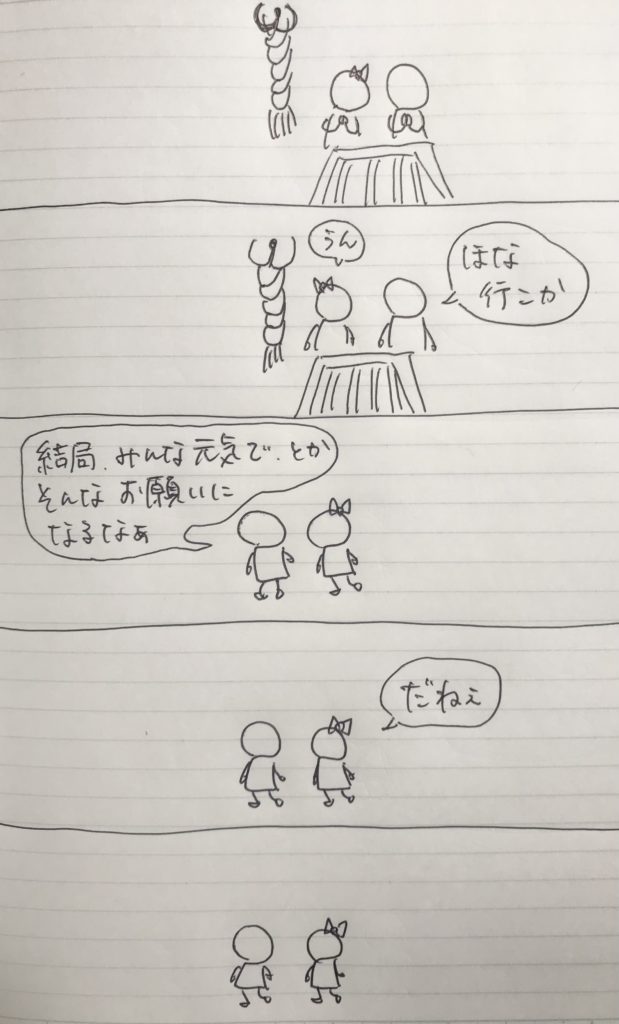 ほな
行こか
うん
結局、みんな元気で、とか
そんなお願いに
なるなぁ
だねぇ